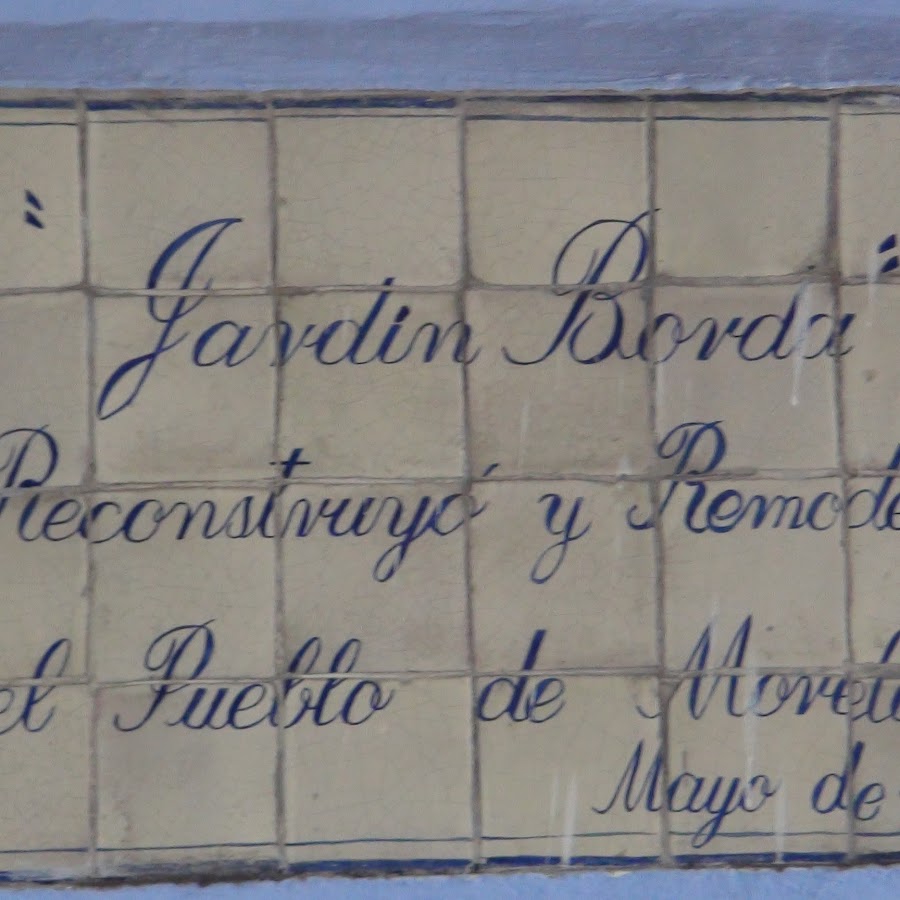 " Jardin Borda "
Reconstruyó y Remode
el Pueblo de Morel
Mayo de